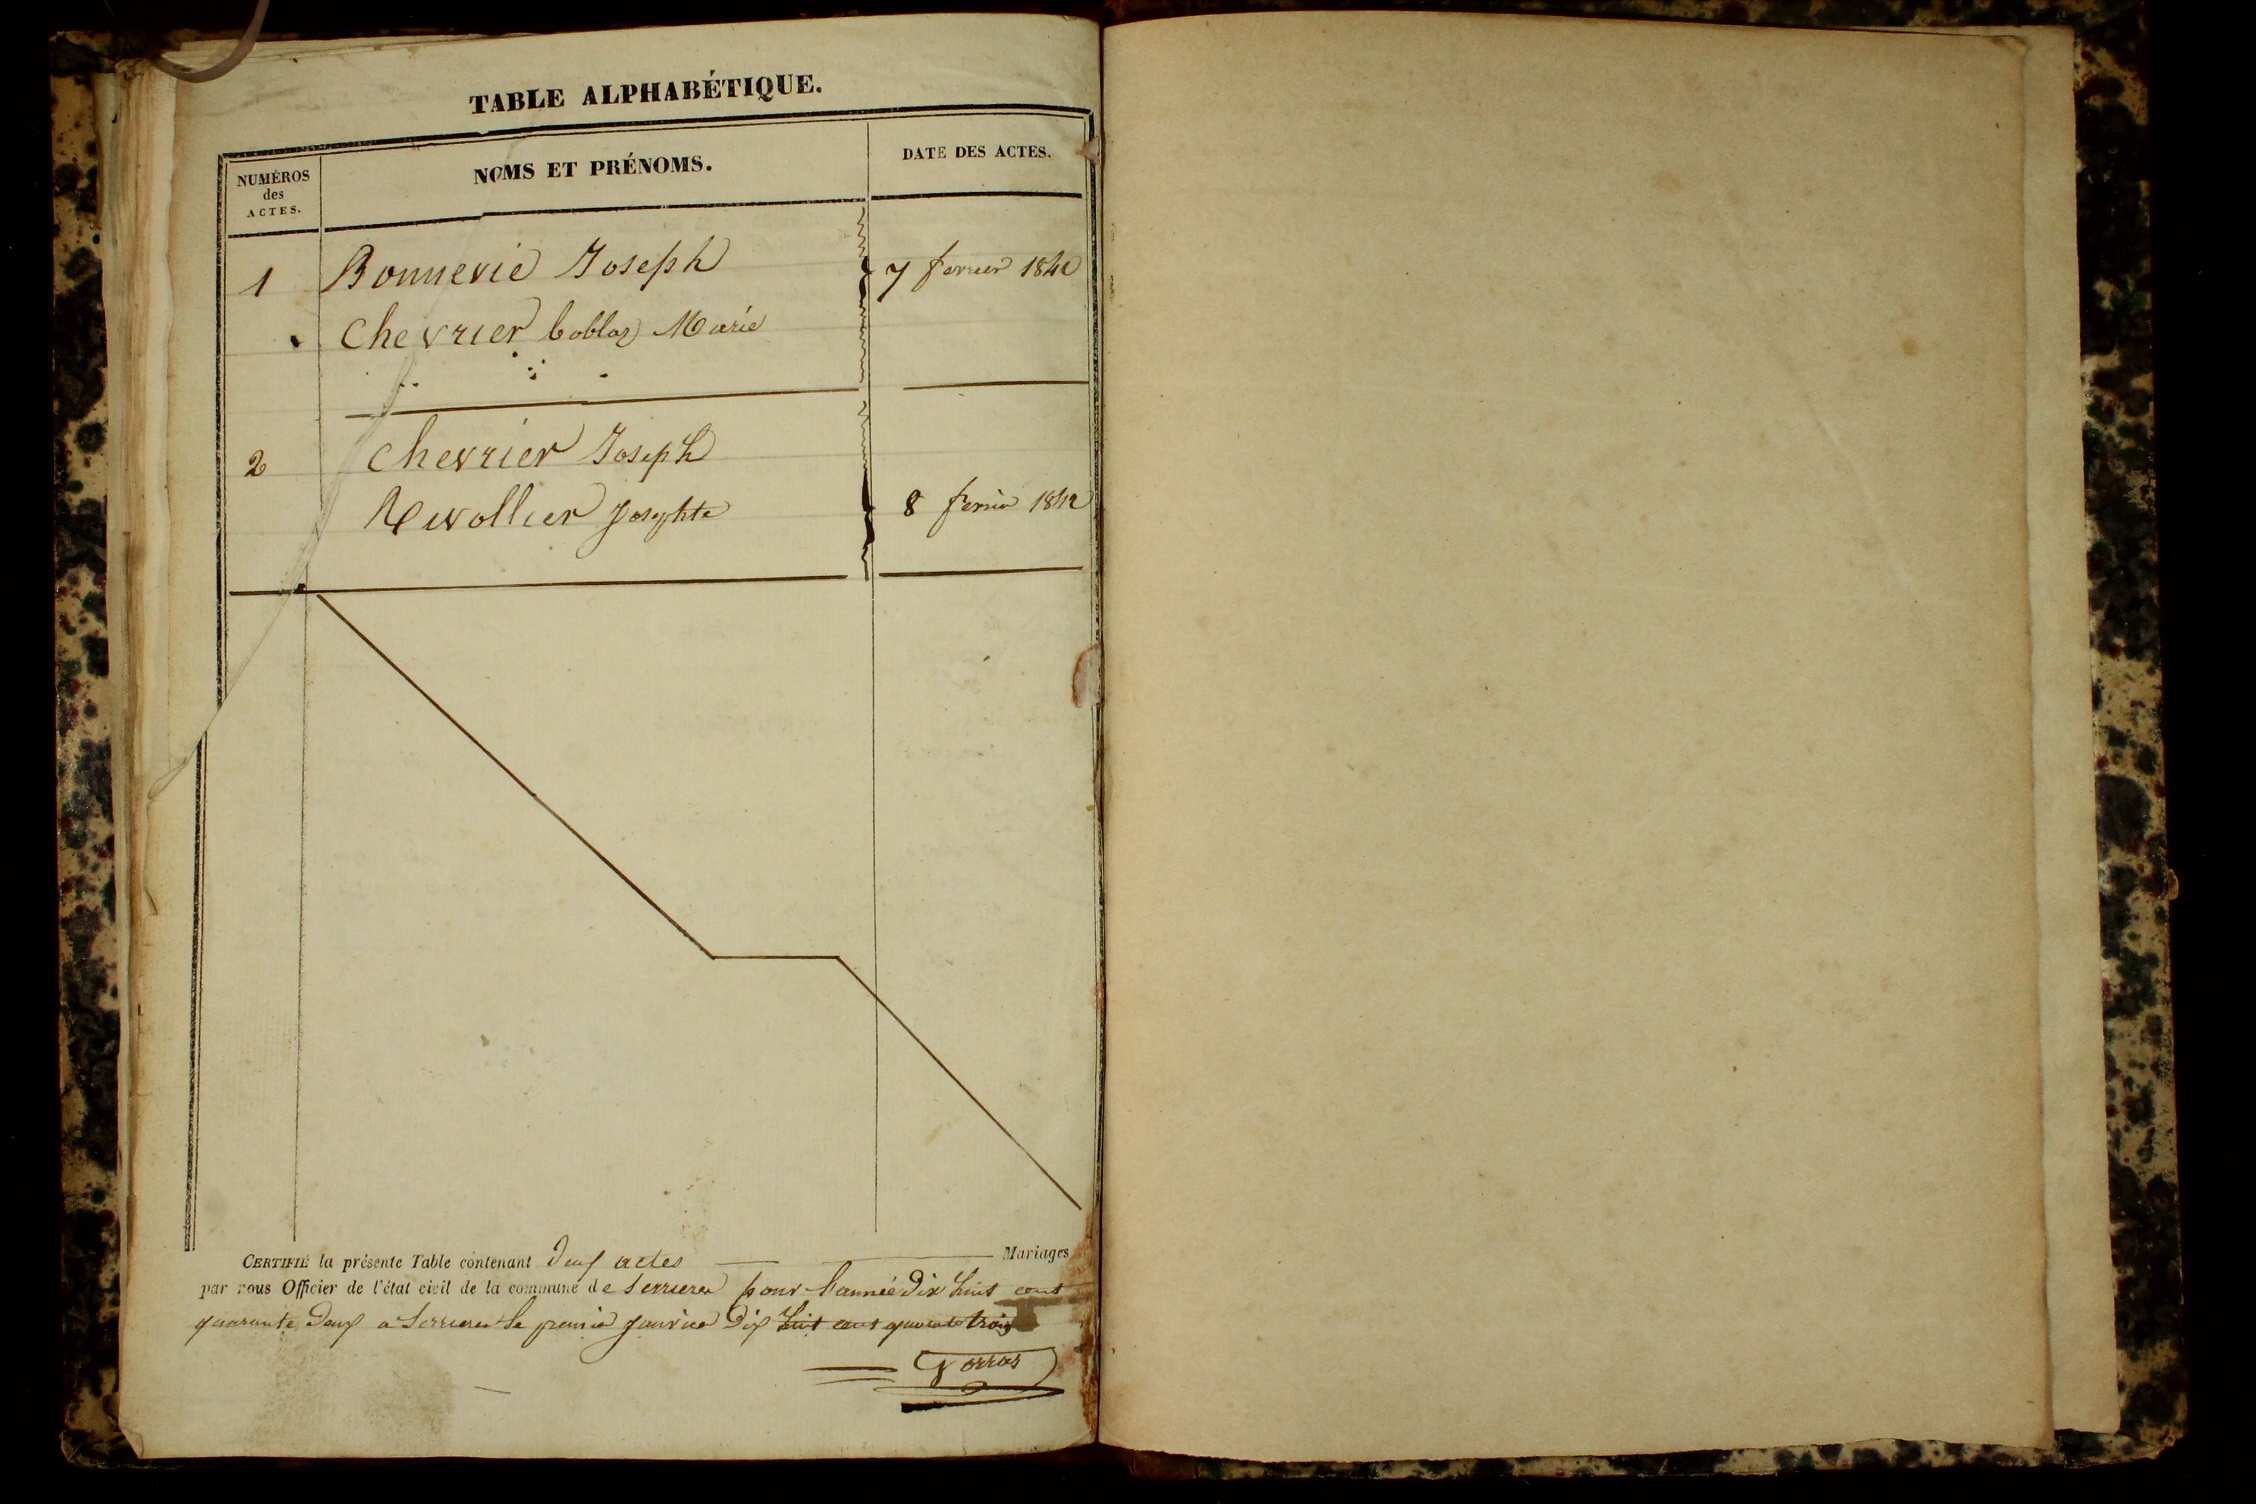 TABLE ALPHABÉTIQUE.
NUMÉROS
des
ACTES.
NOMS ET PRÉNOMS.
DATE DES ACTES.
1 Bonnevie Joseph 7 fevrier 1842
Chevrier Coblaz Marie
2 Chevrier Joseph
Revollier Josephte 8 fevrier 1842
CERTIFIÉ la présente Table contenant deux actes Mariages
par nous Officier de l'état civil de la commune de Serrieres pour l'année dix huit cent
quarante deux a Serrieres le premier janvier dix huit cent quarante trois